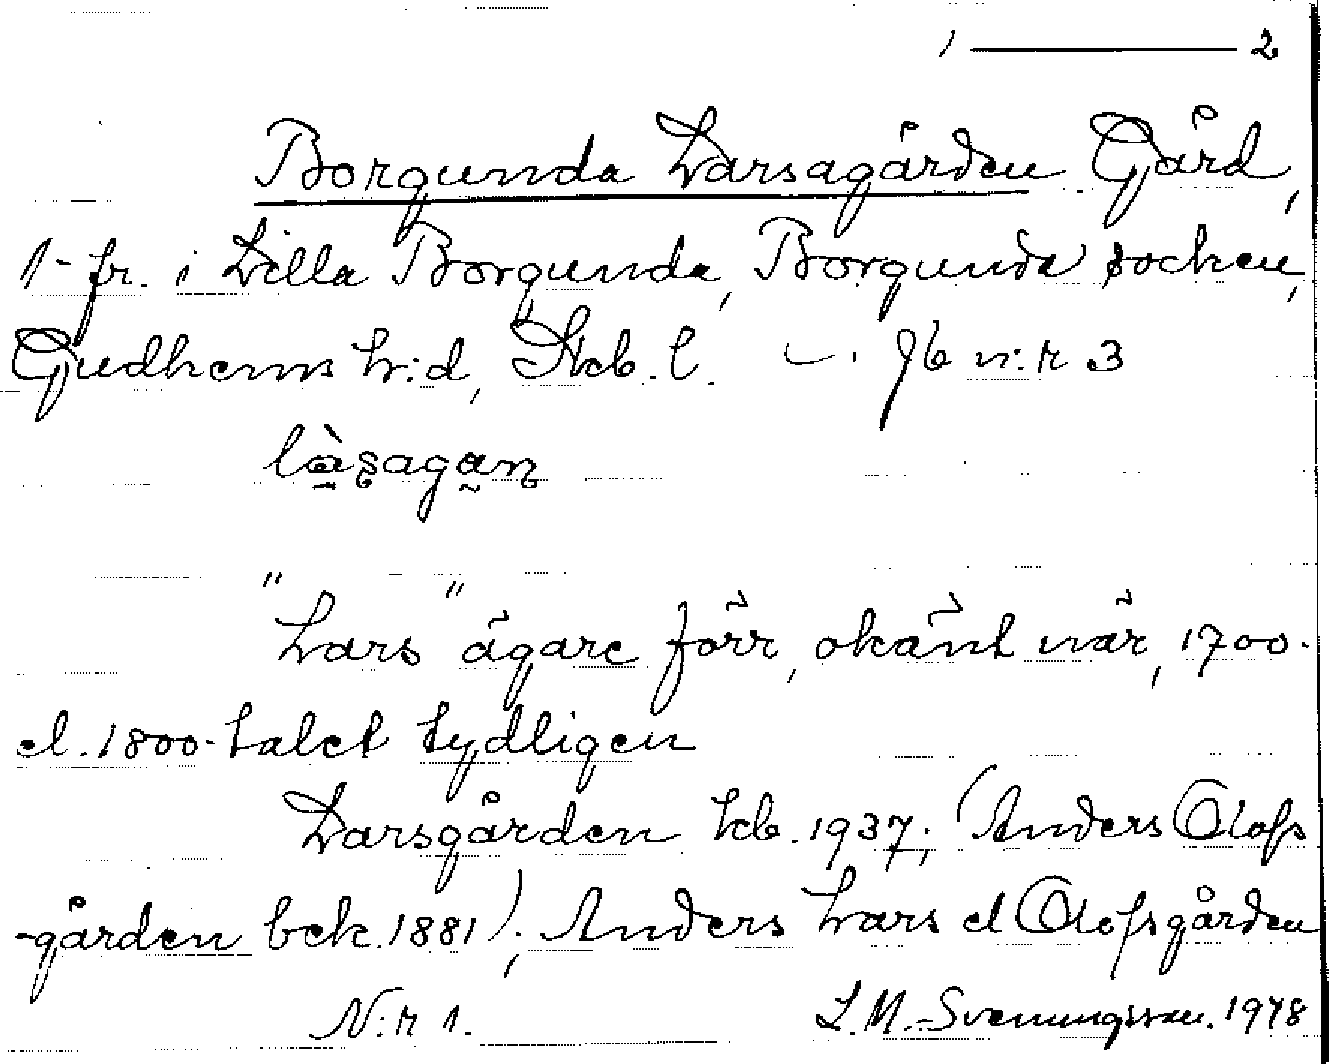 1 ——— 2
Borgunda Larsagården Gård,
1-fr. i Lilla Borgunda, Borgunda socken,
Gudhems h:d, Skb. l. Jb n:r 3
"Lars" ägare förr, okänt när, 1700-
el. 1800-talet tydligen
Larsgården tcb. 1937; (Anders Olofs
-gården bek. 1881); Anders Lars el Olofsgården
N:r 1. L.M. Svenungsson. 1978